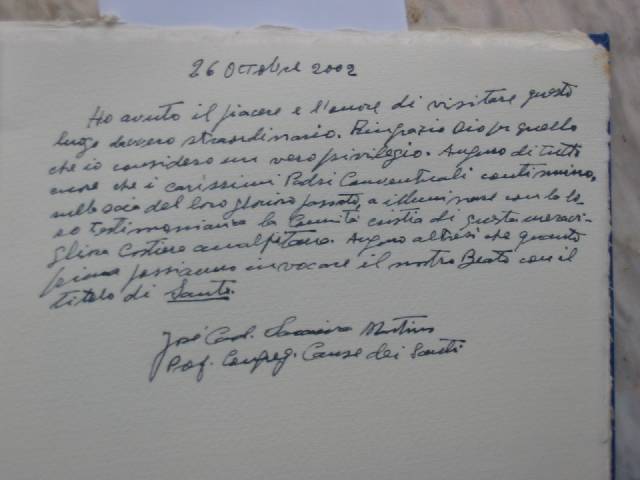 26 Ottobre 2002
Ho avuto il piacere e l'onore di visitare questo
luogo davvero straordinario. Ringrazio Dio per quello
che io considero un vero privilegio. Auguro di tutto
cuore che i carissimi Padri Conventuali continuino,
sulla scia del loro glorioso passato, a illuminare con la lo-
ro testimonianza la Comunità cristia di questa meravi-
gliosa Costiera amalfitana. Auguro altresì che quanto
prima possiamo invocare il nostro Beato con il
titolo di Santo.
José Card. Saraiva Martins
Pref. Congreg. Cause dei Santi